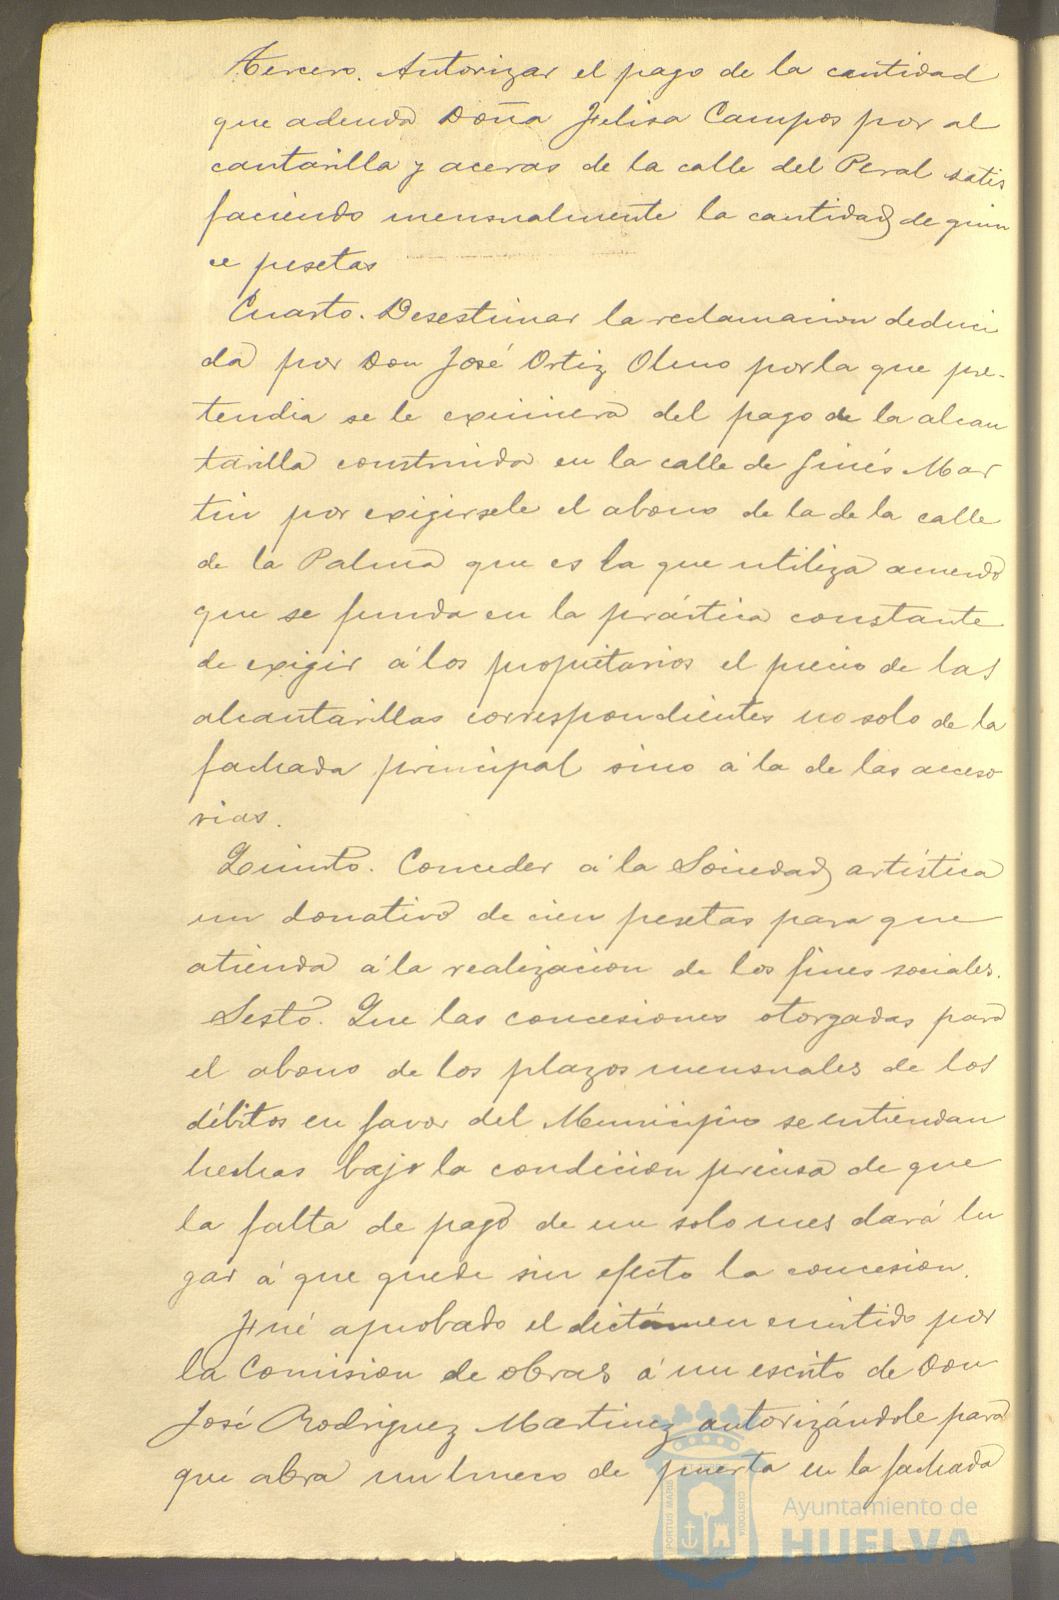 Tercero. Autorizar el pago de la cantidad
que adeuda Doña Felisa Campos por al
cantarilla y aceras de la calle del Peral satis
faciendo mensualmente la cantidad de quin
ce pesetas
Cuarto. Desestimar la reclamacion deduci
da por Don José Ortiz Olmo por la que pre-
tendia se le eximiera del pago de la alcan
tarilla construida en la calle de Ginés Mar
tin por exigirsele el abono de la de la calle
de la Palma que es la que utiliza acuerdo
que se funda en la práctica constante
de exigir á los propietarios el precio de las
alcantarillas correspondientes no solo de la
fachada principal sino á la de las acceso
rias.
Quinto. Conceder á la Sociedad artística
un donativo de cien pesetas para que
atienda á la realizacion de los fines sociales.
Sesto. Que las concesiones otorgadas para
el abono de los plazos mensuales de los
débitos en favor del Municipio se entiendan
hechas bajo la condicion precisa de que
la falta de pago de un solo mes dará lu
gar á que quede sin efecto la concesion.
Fué aprobado el dictámen emitido por
la Comision de obras á un escrito de Don
José Rodriguez Martinez autorizándole para
que abra un hueco de puerta en la fachada
Ayuntamiento de
HUELVA
PORTUS MARIS
CUSTODIA